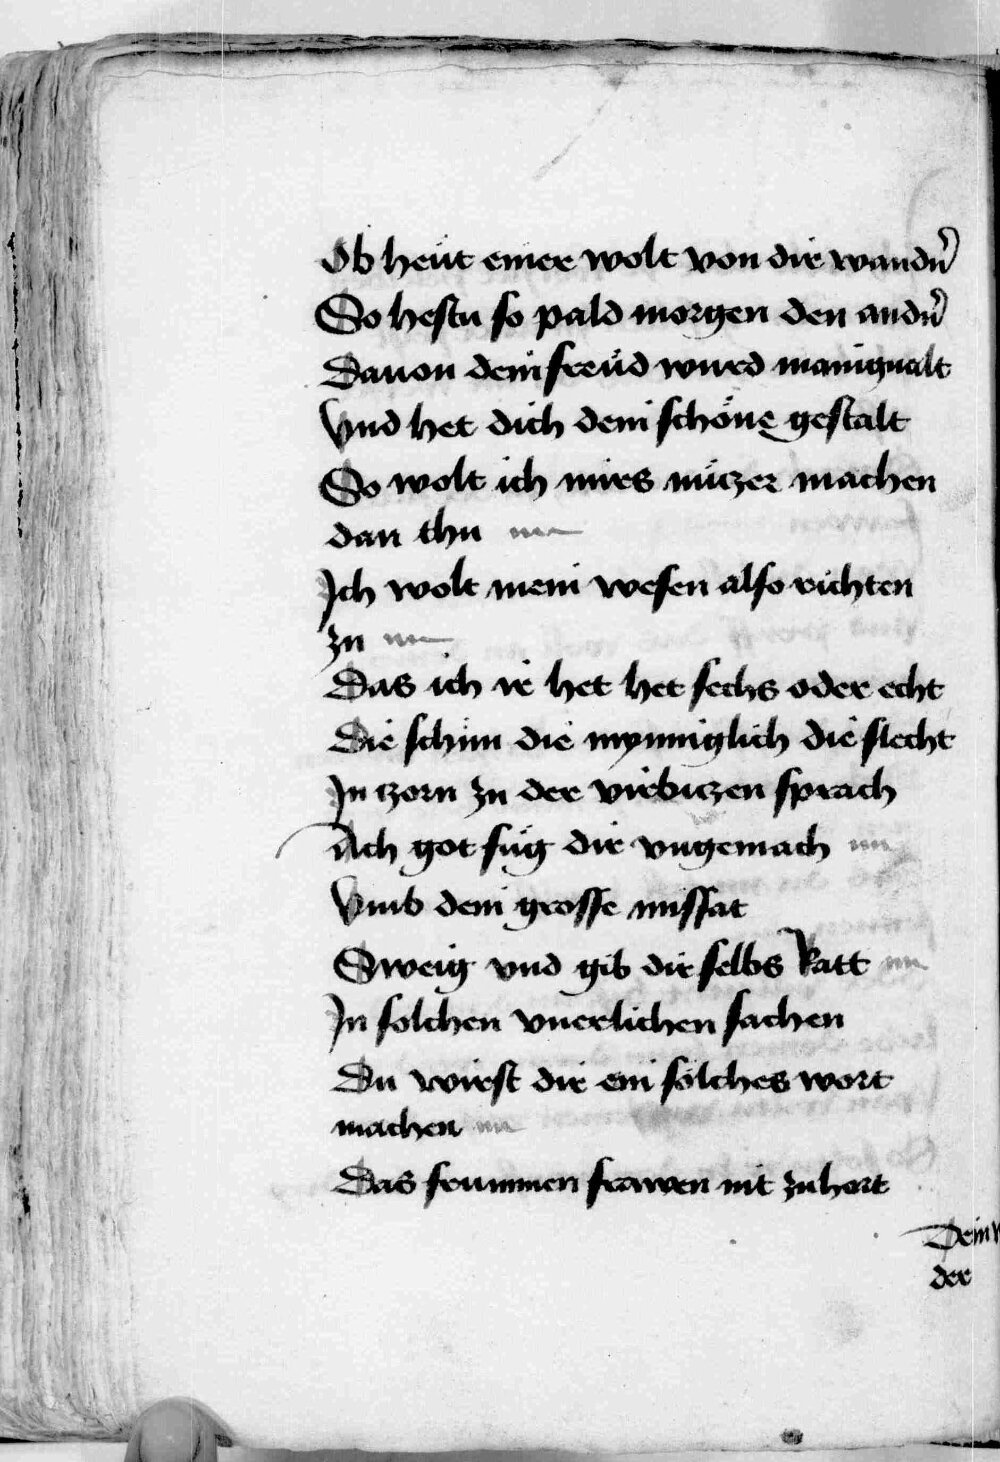 Ob heüt einer wolt von dir wandn̄
So hestu so pald morgen den andn̄
Dauon dein freüd wurd manigualt
Vnd het dich dein schöne gestalt
So wolt ich mirs nüczer machen
dan thu
Ich wolt mein wesen also richten
zu
Das ich ir het het sechs oder echt
Die schön die mynniglich die slecht
In zorn zu der virbiczen sprach
Ach got füg dir vngemach
Vmb dein grosse missat
Sweig vnd gib dir selbs Ratt
In solchen vnerlichen sachen
Du wirst dir ein sölches wort
machen
Das frummen frawen nit zuhort
Dein
der